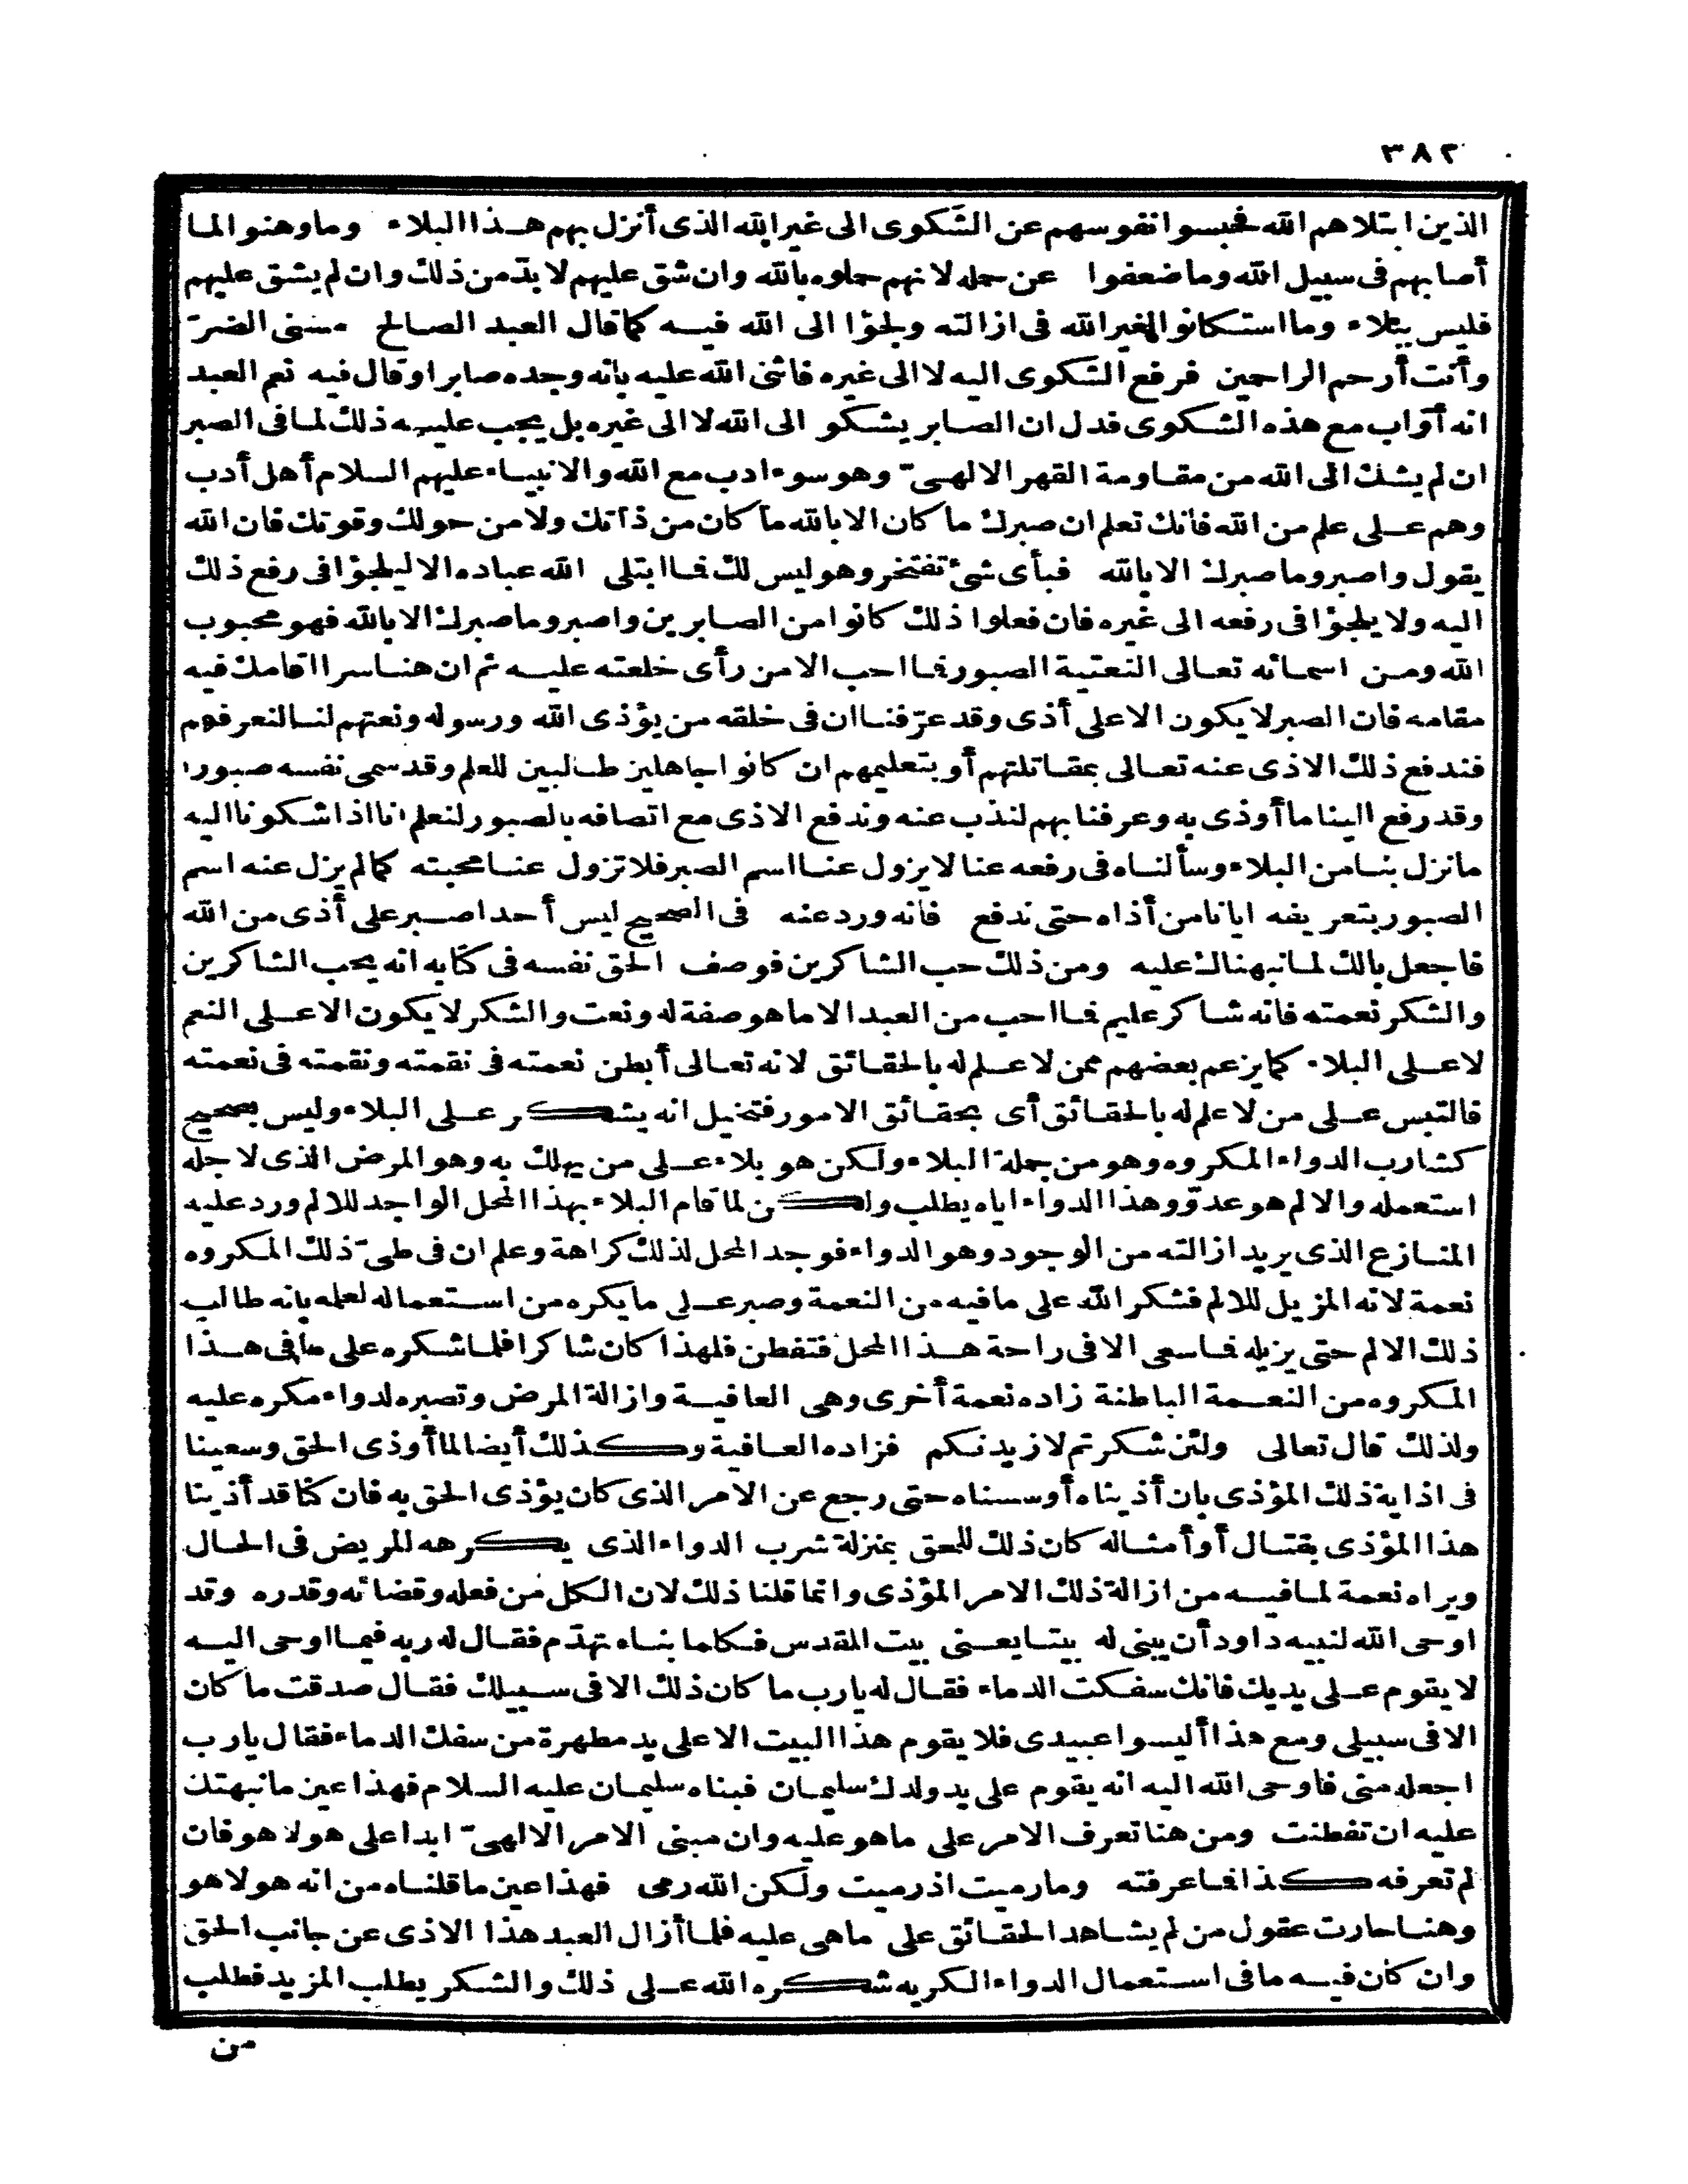 ٣٨٢
الذين ابتلاهم الله فحبسوا نفوسهم عن الشكوى الى غير الله الذى أنزل بهم هذا البلاء وما وهنوا لما
أصابهم فى سبيل الله وما ضعفوا عن حمله لانهم حملوه بالله وان شق عليهم لا بدّ من ذلك وان لم يشق عليهم
فليس ببلاء وما استكانوا لغير الله فى ازالته ولجؤا الى الله فيه كما قال العبد الصالح مسنى الضرّ
وأنت أرحم الراحمين فرفع الشكوى اليه لا الى غيره فاثنى الله عليه بانه وجده صابرا وقال فيه نعم العبد
انه أوّاب مع هذه الشكوى فدل ان الصابر يشكو الى الله لا الى غيره بل يجب عليه ذلك لما فى الصبر
ان لم يشك الى الله من مقاومة القهر الالهىّ وهو سوء ادب مع الله والانبياء عليهم السلام أهل أدب
وهم على علم من الله فانك تعلم ان صبرك ما كان الا بالله ما كان من ذاتك ولا من حولك وقوتك فان الله
يقول واصبر وما صبرك الا بالله فبأى شئ تفتخر وهو ليس لك فما ابتلى الله عباده الا ليلجؤا فى رفع ذلك
اليه ولا يلجؤا فى رفعه الى غيره فان فعلوا ذلك كانوا من الصابرين واصبر وما صبرك الا بالله فهو محبوب
الله ومن اسمائه تعالى النعتية الصبور فما احب الا من رأى خلعته عليه ثم ان هنا سرا اقامك فيه
مقامه فان الصبر لا يكون الا على أذى وقد عرّفنا ان فى خلقه من يؤذى الله ورسوله ونعتهم لنا لنعرفهم
فندفع ذلك الاذى عنه تعالى بمقاتلتهم أو بتعليمهم ان كانوا جاهلين طالبين للعلم وقد سمى نفسه صبورا
وقد رفع الينا ما أوذى به وعرفنا بهم لنذب عنه وندفع الاذى مع اتصافه بالصبور لنعلم انا اذا شكونا اليه
ما نزل بنا من البلاء وسألناه فى رفعه عنا لا يزول عنا اسم الصبر فلا تزول عنا محبته كما لم يزل عنه اسم
الصبور بتعريفه ايانا من أذاه حتى ندفع فانه ورد عنه فى الصحيح ليس أحد اصبر على أذى من الله
فاجعل بالك لما نبهناك عليه ومن ذلك حب الشاكرين فوصف الحق نفسه فى كتابه انه يحب الشاكرين
والشكر نعمته فانه شاكر عليم فما احب من العبد الا ما هو صفة له ونعت والشكر لا يكون الا على النعم
لا على البلاء كما يزعم بعضهم ممن لا علم له بالحقائق لانه تعالى أبطن نعمته فى نقمته ونقمته فى نعمته
فالتبس على من لا علم له بالحقائق أى بحقائق الامور فتخيل انه يشكر على البلاء وليس بصحيح
كشارب الدواء المكروه وهو من جملة البلاء ولكن هو بلاء على من يهلك به وهو المرض الذى لاجله
استعمله والالم هو عدوّ وهذا الدواء اياه يطلب ولكن لما قام البلاء بهذا المحل الواجد للالم ورد عليه
المنازع الذى يريد ازالته من الوجود وهو الدواء فوجد المحل لذلك كراهة وعلم ان فى طىّ ذلك المكروه
نعمة لانه المزيل للالم فشكر الله على ما فيه من النعمة وصبر على ما يكره من استعماله لعلمه بانه طالب
ذلك الالم حتى يزيله فما سعى الا فى راحة هذا المحل فتفطن فلهذا كان شاكرا فلما شكره على ما فى هذا
المكروه من النعمة الباطنة زاده نعمة أخرى وهى العافية وازالة المرض وتصبره لدواء مكره عليه
ولذلك قال تعالى ولئن شكرتم لازيدنكم فزاده العافية وكذلك أيضا لما أوذى الحق وسعينا
فى اذاية ذلك المؤذى بان أذيناه أو سسناه حتى رجع عن الامر الذى كان يؤذى الحق به فان كنا قد أذينا
هذا المؤذى بقتال أو أمثاله كان ذلك للحق بمنزلة شرب الدواء الذى يكرهه للمريض فى الحال
ويراه نعمة لما فيه من ازالة ذلك الامر المؤذى وانما قلنا ذلك لان الكل من فعله وقضائه وقدره وقد
اوحى الله لنبيه داود أن يبنى له بيتا يعنى بيت المقدس فكلما بناه تهدّم فقال له ربه فيما اوحى اليه
لا يقوم على يديك فانك سفكت الدماء فقال له يارب ما كان ذلك الا فى سبيلك فقال صدقت ما كان
الا فى سبيلى ومع هذا أليسوا عبيدى فلا يقوم هذا البيت الا على يد مطهرة من سفك الدماء فقال يارب
اجعله منى فاوحى الله اليه انه يقوم على يد ولدك سليمان فبناه سليمان عليه السلام فهذا عين ما نبهتك
عليه ان تفطنت ومن هنا تعرف الامر على ما هو عليه وان مبنى الامر الالهىّ ابدا على هو لا هو فان
لم تعرفه كذا فما عرفته وما رميت اذ رميت ولكن الله رمى فهذا عين ما قلناه من انه هو لا هو
وهنا حارت عقول من لم يشاهد الحقائق على ما هى عليه فلما أزال العبد هذا الاذى عن جانب الحق
وان كان فيه ما فى استعمال الدواء الكريه شكره الله على ذلك والشكر يطلب المزيد فطلب
من